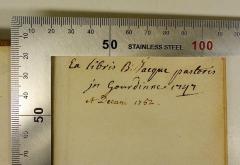 50 STAINLESS STEEL 100
Ex libris B. Jacque pastoris
in Gourdinnes 1747
et Decani 1762.
50